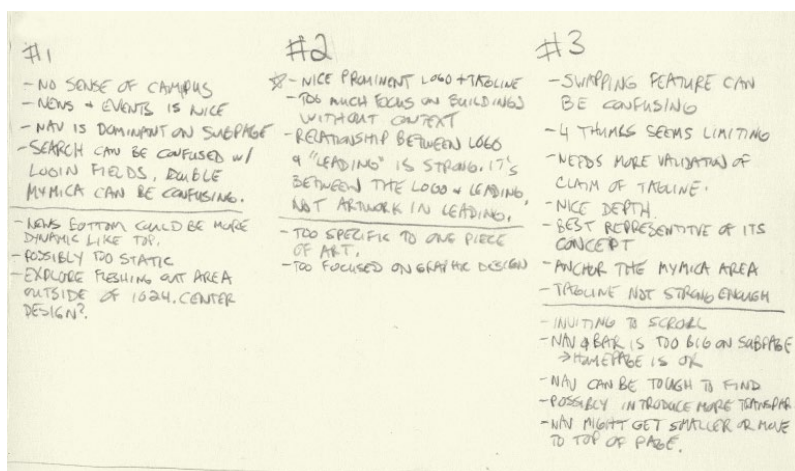 #1
- NO SENSE OF CAMPUS
- NEWS + EVENTS IS NICE
- NAV IS DOMINANT ON SUBPAGE
- SEARCH CAN BE CONFUSED W/
LOGIN FIELDS, DOUBLE
MYMICA CAN BE CONFUSING.
- NEWS BOTTOM COULD BE MORE
DYNAMIC LIKE TOP.
- POSSIBLY TOO STATIC
- EXPLORE FLESHING OUT AREA
OUTSIDE OF 1024. CENTER
DESIGN?
#2
☆- NICE PROMINENT LOGO + TAGLINE
- TOO MUCH FOCUS ON BUILDINGS
WITHOUT CONTEXT
- RELATIONSHIP BETWEEN LOGO
& "LEADING" IS STRONG. IT'S
BETWEEN THE LOGO & LEADING,
NOT ARTWORK IN LEADING.
- TOO SPECIFIC TO ONE PIECE
OF ART.
- TOO FOCUSED ON GRAPHIC DESIGN
#3
- SWAPPING FEATURE CAN
BE CONFUSING
- 4 THUMBS SEEMS LIMITING
- NEEDS MORE VALIDATION OF
CLAIM OF TAGLINE.
- NICE DEPTH.
- BEST REPRESENTITVE OF ITS
CONCEPT
- ANCHOR THE MYMICA AREA
- TAGLINE NOT STRONG ENOUGH
- INVITING TO SCROLL
- NAV & BAR IS TOO BIG ON SUBPAGE
→ HOMEPAGE IS OK
- NAV CAN BE TOUGH TO FIND
- POSSIBLY INTRODUCE MORE TRANSPAR
- NAV MIGHT GET SMALLER OR MOVE
TO TOP OF PAGE.